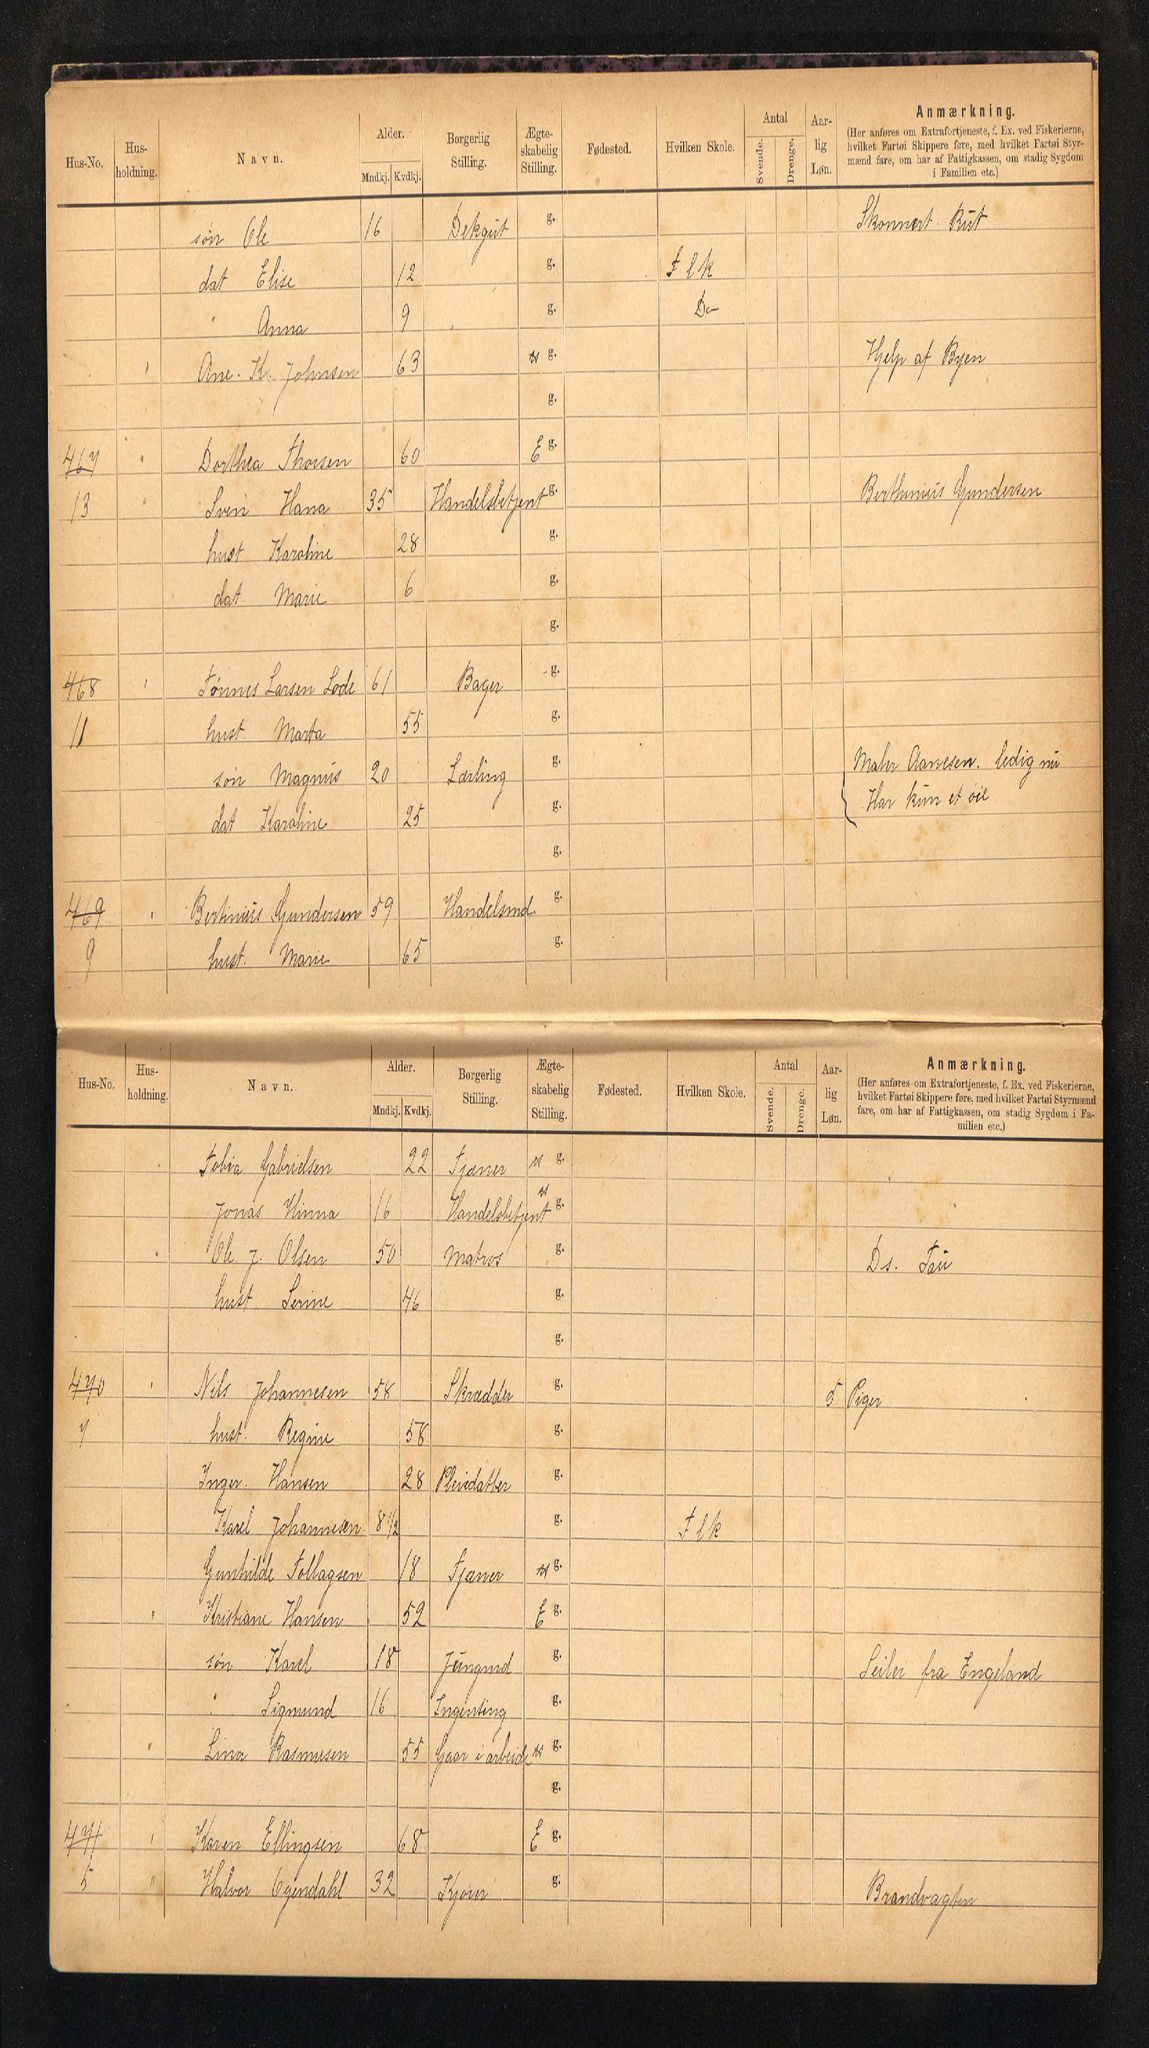 Hus-No. Hus-holdning. Navn. Alder. Mndkj. Kvdkj. Borgerlig Stilling. Ægte-skabelig Stilling. Fødested. Hvilken Skole. Antal Svende. Drenge. Aar-lig Løn. Anmærkning.
(Her anføres om Extrafortjeneste, f. Ex. ved Fiskerierne, hvilket Fartøi Skippere føre, med hvilket Fartøi Styrmænd fare, om har af Fattigkassen, om stadig Sygdom i Familien etc.)
søn Ole 16 Dekgut g. Skonnert Rut
dat Elise 12 g. F l k
" Anna 9 g. Do
" Ane. K. Johnsen 63 u g. Hjelp af Byen
g.
467 " Dorthea Thorsen 60 E g.
13 " Sven Hana 35 Handelsbetjent g. Berthinius Gundersen
hust Karoline 28 g.
dat Marie 6 g.
g.
468 " Tønnes Larsen Lode 61 Bager g.
11 hust. Marta 55 g.
søn Magnus 20 Lærling g. Maler Aanesen. ledig nu
dat Karoline 25 g. Har kun et øie
g.
469 " Bertinius Gundersen 59 Handelsmd g.
9 hust. Marie 65 g.
Hus-No. Hus-holdning. Navn. Alder. Mndkj. Kvdkj. Borgerlig Stilling. Ægte-skabelig Stilling. Fødested. Hvilken Skole. Antal Svende. Drenge. Aar-lig Løn. Anmærkning.
(Her anføres om Extrafortjeneste, f. Ex. ved Fiskerierne, hvilket Fartøi Skippere føre, med hvilket Fartøi Styrmænd fare, om har af Fattigkassen, om stadig Sygdom i Familien etc.)
" Tobia Gabrielsen 22 Tjener u g.
Jonas Hinna 16 Handelsbetjent u g.
" Ole J. Olsen 50 Matros g. Ds. Tau
hust. Serine 46 g.
g.
470 " Nils Johannesen 58 Skrædder g. 5 Piger
7 hust. Regine 58 g.
Inger Hansen 28 Pleiedatter g.
Karel Johannesen 8 1/2 g. F l k
Gunhilde Tollagsen 18 Tjener u g.
" Kristiane Hansen 52 E g.
søn Karel 18 Jungmd g. Seiler fra Engeland
" Sigmund 16 Ingenting g.
" Lina Rasmusen 55 Gaar i arbeide u g.
g.
471 " Karen Ellingsen 68 E g.
5 " Halvor Ogendahl 32 Kjører g. Brandvagten